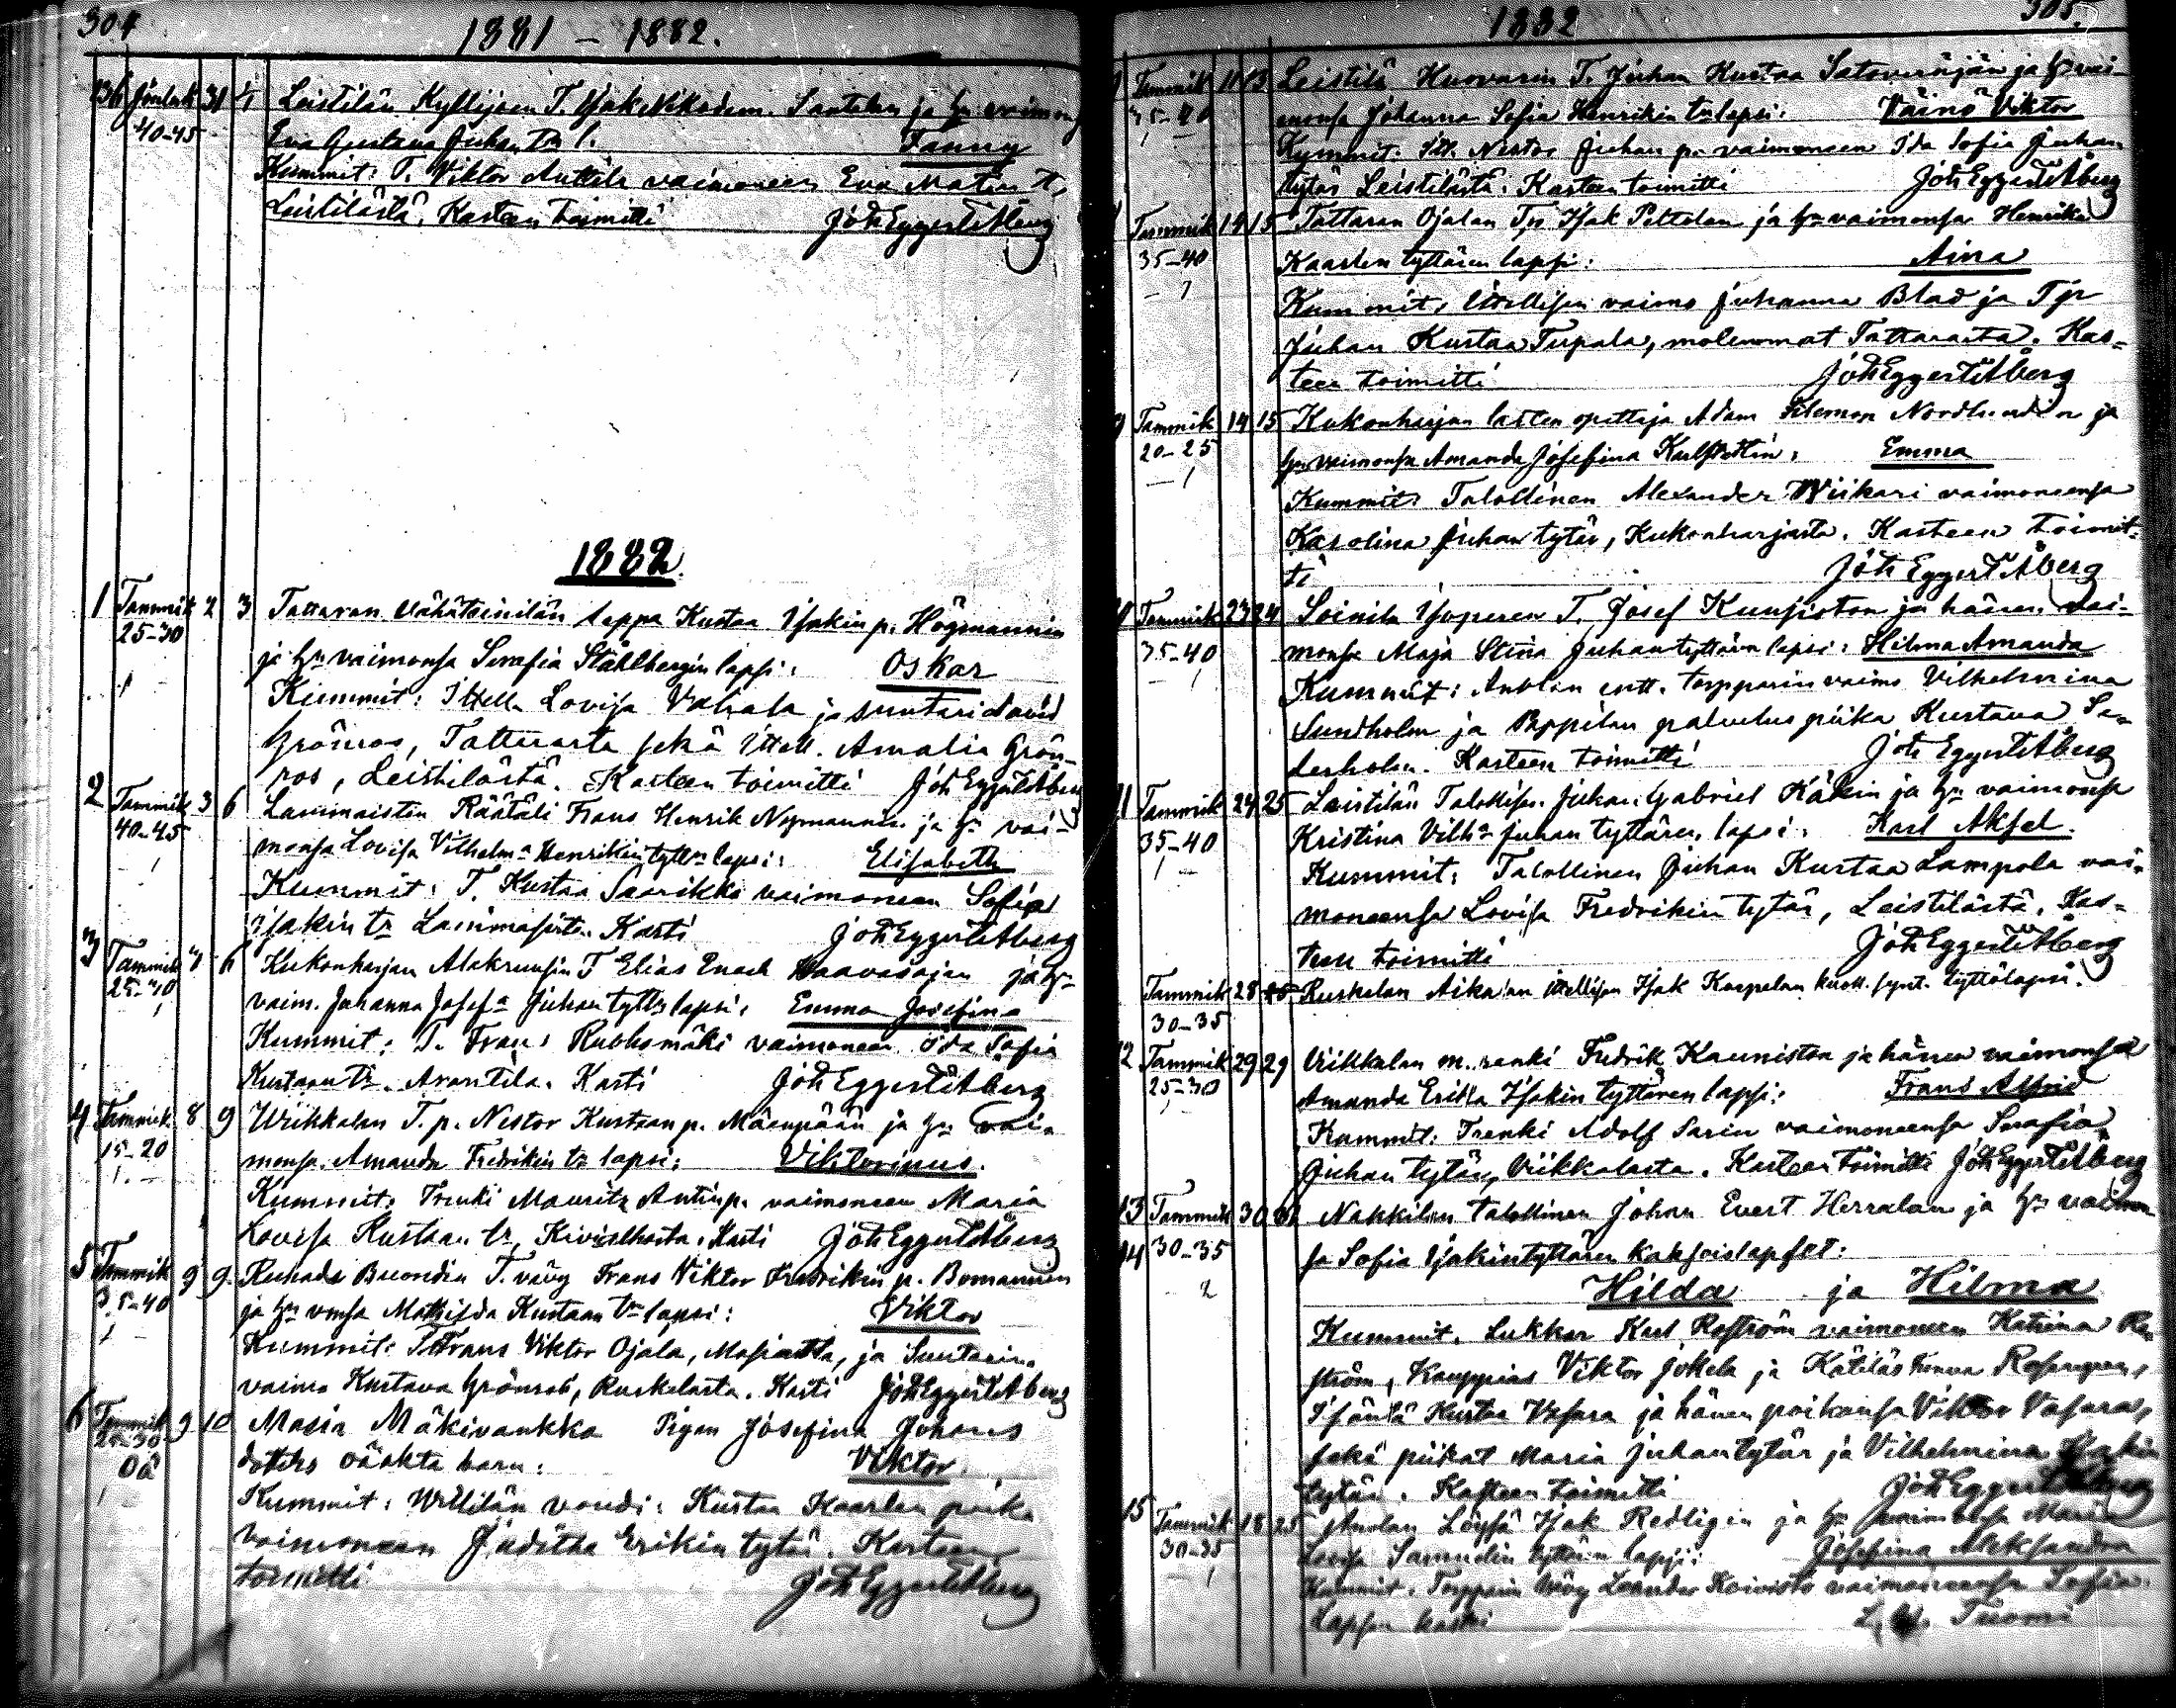 304
1881 – 1882.
136 Jouluk 31 Leistilän Kyllijoen T. Isak Nikodem. Santalan ja hn vaimons
40-45 Eva Gustava Juhan tr l. Fanny
Kummit: T. Viktor Anttila vaimoneen Eva Matin tr
Leistilästä. Kasteen toimitti Joh Eggert Åberg
1882.
1 Tammik 2 3 Tattaran Vähäteinilän seppä Kustaa Isakin p. Högmannin
25-30 ja hn vaimonsa Serafia Ståhlbergin lapsi: Oskar
1 Kummit: Ittell. Lovisa Vahala ja suntari David
Grönros, Tattarasta sekä Ittell. Amalia Grön-
ros, Leistilästä. Kasteen toimitti Joh Eggert Åberg
2 Tammik 3 6 Lammaisten Räätäli Frans Henrik Nymannin ja hn vai-
40-45 monsa Lovisa Vilhelma Henrikin tyttn lapsi: Elisabeth
1 Kummit: T. Kustaa Saarikko vaimoneen Sofia
Isakin tr Lammaisista. Kasti Joh Eggert Åberg
3 Tammik 6 Kukonharjan Alakruusin T Elias Enoch Haavasojan ja hn
vaim. Juhanna Josefa Juhan tyttn lapsi: Emma Josefina
1 Kummit: T. Frans Ruohomäki vaimoneen Ida Sofia
Kustaan tr. Arantila. Kasti Joh Eggert Åberg
4 Tammik 8 9 Wiikkalan T. p. Nestor Kustaan p. Mäenpään ja hn vai-
15-20 monsa Amanda Fredrikin tr lapsi: Viktorinus.
1. Kummit: Trenki Mauritz Antin p. vaimoneen Maria
Lovisa Kustaan tr, Kivialhosta. Kasti Joh Eggert Åberg
5 Tammik 9 9 Ruhade Buondin T. vävy Frans Viktor Fredrikin p. Bomannin
35-40 ja hn vmsa Mathilda Kustaan tr lapsi: Viktor
1 Kummit: T Frans Viktor Ojala, Masiasta, ja Suntarin
vaimo Kustava Grönros, Ruskelasta. Kasti Joh Eggert Åberg
6 Tammik 9 10 Masia Mäkivankka Pigan Josefina Johans
25-30 dotters oäkta barn: Viktor.
oä
1 Kummit: Willilän voudi: Kustaa Kaarlen poika
vaimoneen Juditha Erikin tytär. Kasteen
toimitti Joh Eggert Åberg
1882 305.
Tammik 11 13 Leistilä Huovarin T. Juhan Kustaa Satoveräjän ja hn vai-
35-40 monsa Johanna Sofia Henrikin tr lapsi: Väinö Viktor
1 Kummit: Itt. Nestor Juhan p. vaimoneen Ida Sofia Juhan
tytär Leistilästä. Kasteen toimitti Joh Eggert Åberg
Tammik 14 15 Tattaran Ojalan Tpr Isak Peltolan ja hn vaimonsa Henrika
35-40 Kaarlen tyttären lapsi: Aina
1 Kummit: Ittellisen vaimo Juhanna Blad ja Tpr
Juhan Kustaa Tupala, molemmat Tattarasta. Kas-
teen toimitti Joh Eggert Åberg
9 Tammik 14 15 Kukonharjan lasten opettaja Adam Filemon Nordlundin ja
20-25 hn vaimonsa Amanda Josefina Karlstedtin: Emma
1 Kummit: Talollinen Alexander Wiikari vaimoneensa
Karolina Juhan tytär, Kukonharjasta. Kasteen toimit-
ti Joh Eggert Åberg
10 Tammik 23 24 Soinila Yoperen T. Josef Kuusiston ja hänen vai-
35-40 monsa Maja Stina Juhantyttären lapsi: Hilma Amanda
1 Kummit: Anolan entt. torpparin vaimo Vilhelmina
Sundholm ja Pappilan palveluspiika Kustava Se-
derholm. Kasteen toimitti Joh Eggert Åberg
11 Tammik 24 25 Leistilän Talollisen Juhan Gabriel Käkin ja hn vaimonsa
35-40 Kristina Vilha Juhan tyttären lapsi: Karl Aksel.
1 Kummit: Talollinen Juhan Kustaa Lampola vai-
moneensa Lovisa Fredrikin tytär, Leistilästä. Kas-
teen toimitti Joh Eggert Åberg
Tammik 28 Ruskelan Aikalan ittellisen Isak Karpelan kuoll. synt. tyttölapsi.
30-35
12 Tammik 29 29 Viikkalan m. renki Fredrik Kauniston ja hänen vaimonsa
25-30 Amanda Erika Isakin tyttären lapsi: Frans Alfrid
1 Kummit: Trenki Adolf Sarin vaimoneensa Serafia
Juhan tytär, Viikkalasta. Kasteen toimitti Joh Eggert Åberg
13 Tammik 30 31 Nakkilan talollinen Johan Evert Herralan ja hn vaimon-
14 30-35 sa Sofia Isakintyttären kaksoislapset:
2 Hilda ja Hilma
Kummit: Lukkar Karl Roström vaimoneen Katrina Ro-
ström, Kauppias Viktor Jokela ja Kätilö
Isäntä Kustaa Vasara ja hänen poikansa Viktor Vasara,
sekä piikat Maria Juhantytär ja Vilhelmina
tytär. Kasteen toimitti Joh Eggert Åberg
15 Tammik 18 25 Anolan Löysä Isak Redligin ja hn vaimonsa Maria
30-35 Lovisa Samuelin tyttären lapsi: Josefina Aleksandra
1 Kummit: Torpparin vävy Leander Koivisto vaimoneensa Sofia.
Lapsen kasti L. Tuomi